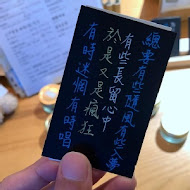 總要有些隨風有些入夢
有些長留心中
於是又是瘋狂
有時迷惘有時唱